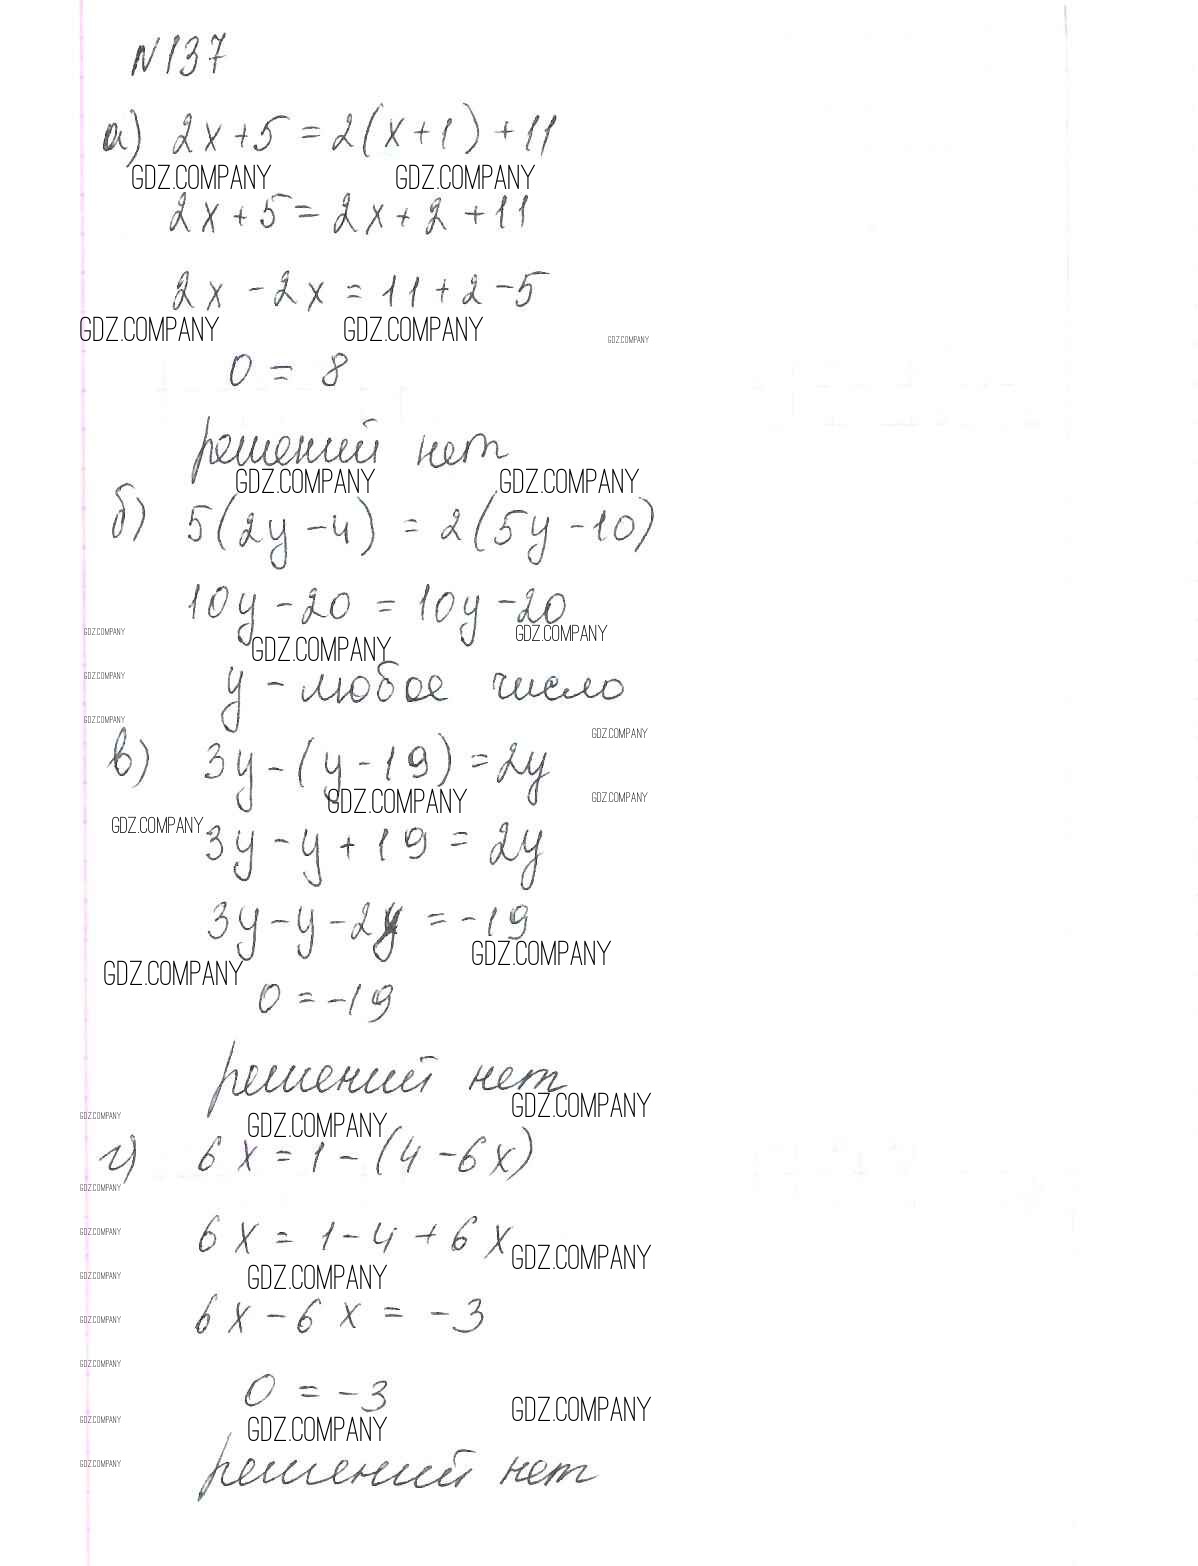 №137
а) 2x+5=2(x+1)+11
GDZ.COMPANY GDZ.COMPANY
2x+5=2x+2+11
2x-2x=11+2-5
GDZ.COMPANY GDZ.COMPANY GDZ.COMPANY
0=8
решений нет
GDZ.COMPANY GDZ.COMPANY
б) 5(2y-4)=2(5y-10)
10y-20=10y-20
GDZ.COMPANY GDZ.COMPANY GDZ.COMPANY
GDZ.COMPANY
y-любое число
GDZ.COMPANY
GDZ.COMPANY
в) 3y-(y-19)=2y
GDZ.COMPANY GDZ.COMPANY
GDZ.COMPANY
3y-y+19=2y
3y-y-2y=-19
GDZ.COMPANY GDZ.COMPANY
0=-19
решений нет
GDZ.COMPANY GDZ.COMPANY GDZ.COMPANY
г) 6x=1-(4-6x)
GDZ.COMPANY
GDZ.COMPANY
6x=1-4+6x
GDZ.COMPANY GDZ.COMPANY GDZ.COMPANY
6x-6x=-3
GDZ.COMPANY
GDZ.COMPANY
0=-3
GDZ.COMPANY GDZ.COMPANY GDZ.COMPANY
GDZ.COMPANY
решений нет